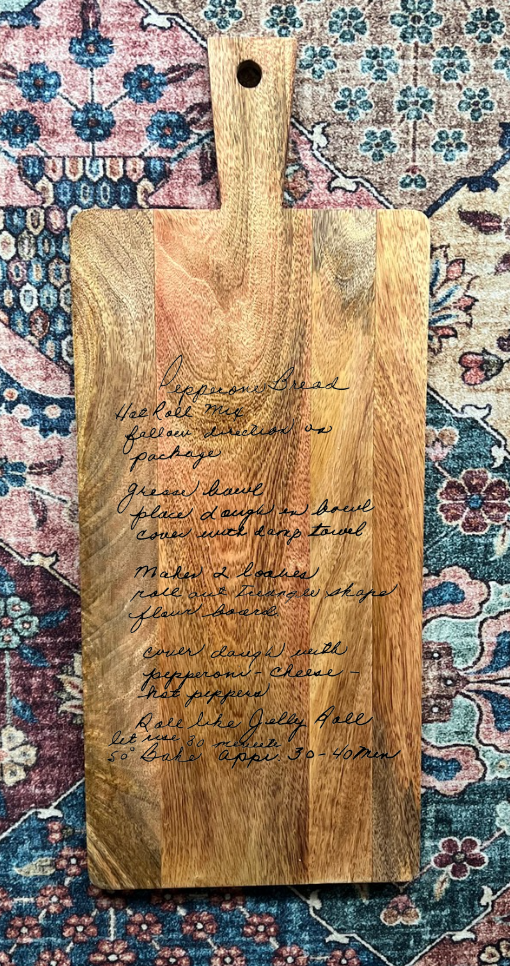 Pepperoni Bread
Hot Roll Mix
follow direction on
package
grease bowl
place dough in bowl
cover with damp towel
Makes 2 loaves
roll out triangle shape
flour board
cover dough with
pepperoni - cheese -
hot peppers
Roll like Jelly Roll
let rise 30 minute
50° Bake appx 30-40 Min